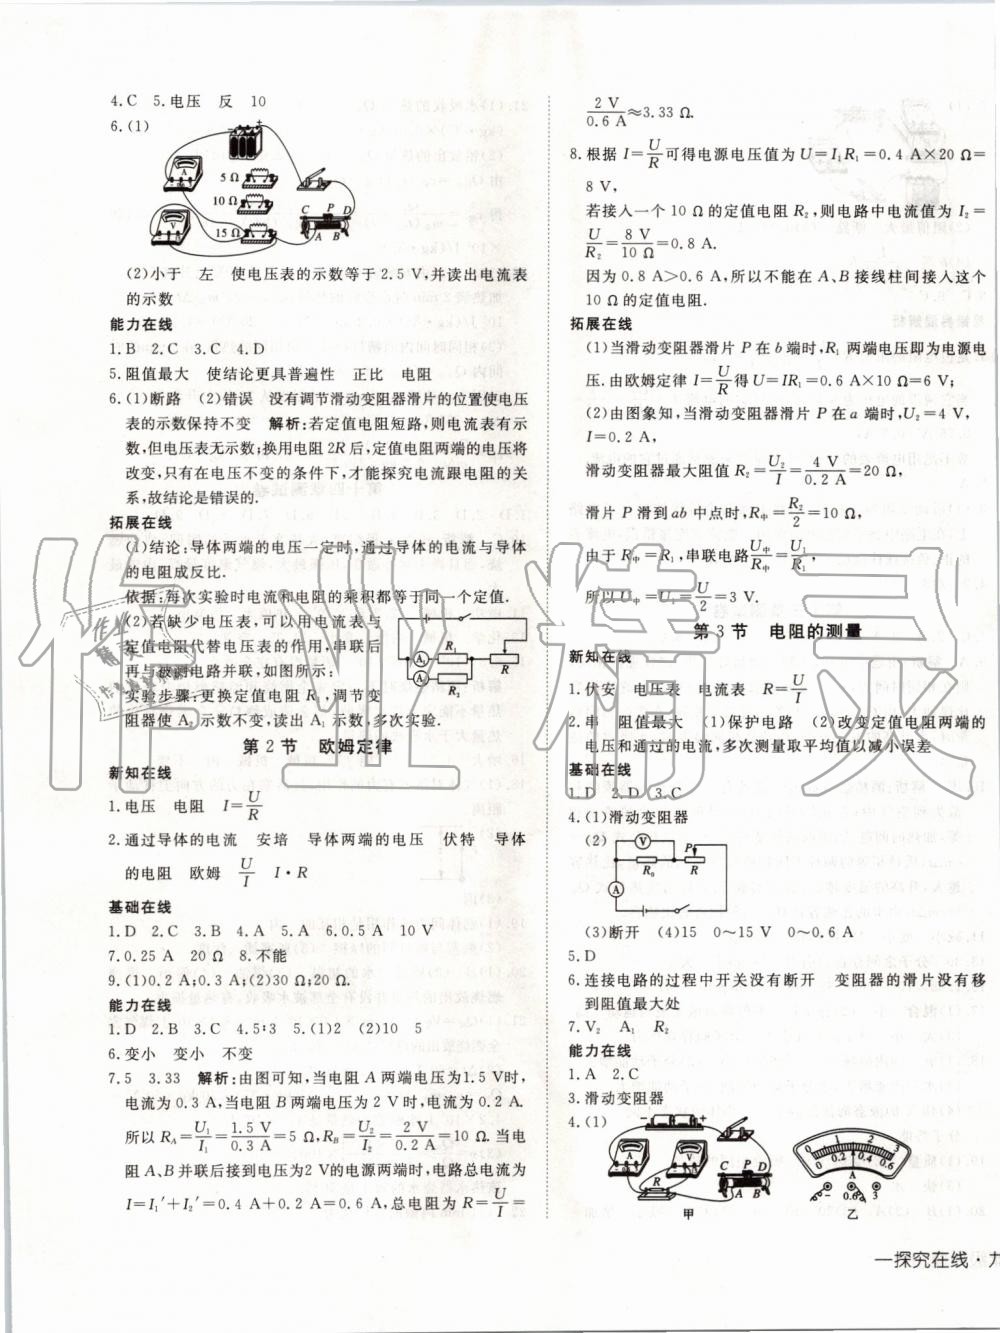 4.C  5.电压  反  10
6.(1)
5 Ω
10 Ω
15 Ω
C P D
A B
(2)小于  左  使电压表的示数等于 2.5 V,并读出电流表
的示数
能力在线
1.B  2.C  3.C  4.D
5.阻值最大  使结论更具普遍性  正比  电阻
6.(1)断路  (2)错误  没有调节滑动变阻器滑片的位置使电压
表的示数保持不变  解析:若定值电阻短路,则电流表有示
数,但电压表无示数;换用电阻 2R 后,定值电阻两端的电压将
改变,只有在电压不变的条件下,才能探究电流跟电阻的关
系,故结论是错误的.
拓展在线
(1)结论:导体两端的电压一定时,通过导体的电流与导体
的电阻成反比.
依据:每次实验时电流和电阻的乘积都等于同一个定值.
(2)若缺少电压表,可以用电流表与
定值电阻代替电压表的作用,串联后
再与被测电路并联,如图所示:
实验步骤:更换定值电阻 R₁,调节变
阻器使 A₂ 示数不变,读出 A₁ 示数,多次实验.
A₁ R₁ R
A₂ R₂
第 2 节  欧姆定律
新知在线
1.电压  电阻  I=U/R
2.通过导体的电流  安培  导体两端的电压  伏特  导体
的电阻  欧姆  U/I  I·R
基础在线
1.D  2.C  3.B  4.A  5.A  6.0.5 A  10 V
7.0.25 A  20 Ω  8.不能
9.(1)0.2 A;0.3 A;(2)30 Ω;20 Ω.
能力在线
1.D  2.B  3.C  4.5∶3  5.(1)2  (2)10  5
6.变小  变小  不变
7.5  3.33  解析:由图可知,当电阻 A 两端电压为1.5 V时,
电流为 0.3 A,当电阻 B 两端电压为 2 V时,电流为 0.2 A.
所以 R_A=U₁/I₁=1.5 V/0.3 A=5 Ω,R_B=U₂/I₂=2 V/0.2 A=10 Ω.当电
阻 A、B 并联后接到电压为2 V的电源两端时,电路总电流为
I=I₁′+I₂′=0.4 A+0.2 A=0.6 A,总电阻为 R=U/I=
2 V/0.6 A≈3.33 Ω.
8.根据 I=U/R可得电源电压值为 U=I₁R₁=0.4 A×20 Ω=
8 V,
若接入一个 10 Ω 的定值电阻 R₂,则电路中电流值为 I₂=
U/R₂=8 V/10 Ω=0.8 A.
因为 0.8 A>0.6 A,所以不能在 A、B 接线柱间接入这个
10 Ω 的定值电阻.
拓展在线
(1)当滑动变阻器滑片 P 在 b 端时,R₁ 两端电压即为电源电
压.由欧姆定律 I=U/R得 U=IR₁=0.6 A×10 Ω=6 V;
(2)由图象知,当滑动变阻器滑片 P 在 a 端时,U₂=4 V,
I=0.2 A,
滑动变阻器最大阻值 R₂=U₂/I=4 V/0.2 A=20 Ω,
滑片 P 滑到 ab 中点时,R中=R₂/2=10 Ω,
由于 R中=R₁,串联电路U中/R中=U₁/R₁,
所以 U中=U₁=U/2=3 V.
第 3 节  电阻的测量
新知在线
1.伏安  电压表  电流表  R=U/I
2.串  阻值最大  (1)保护电路  (2)改变定值电阻两端的
电压和通过的电流,多次测量取平均值以减小误差
基础在线
1.D  2.D  3.C
4.(1)滑动变阻器
(2)
V
R₀ P R
A
(3)断开  (4)15  0～15 V  0～0.6 A
5.D
6.连接电路的过程中开关没有断开  变阻器的滑片没有移
到阻值最大处
7.V₂  A₁  R₂
能力在线
1.A  2.C
3.滑动变阻器
4.(1)
R
C P D
A B
甲
0 1 2 3
0 0.2 0.4 0.6
A
- 0.6 3
乙
作业精灵
一探究在线·九